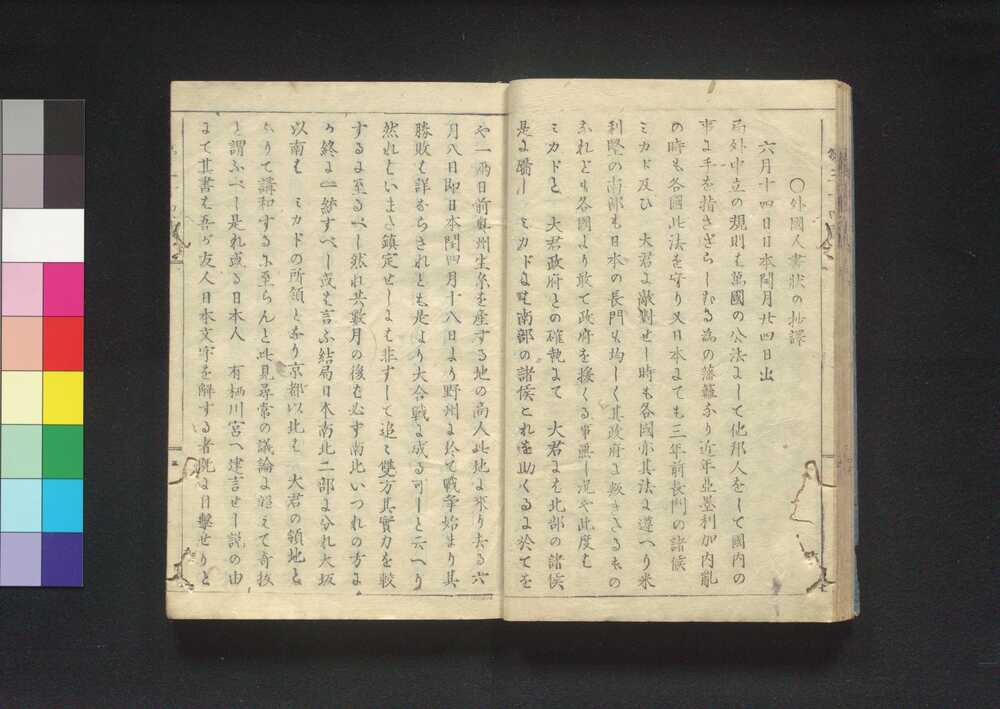 ○外國人書狀の抄譯
六月十四日日本閏月廿四日出
局外中立の規則も萬國の公法にして他邦人をして國内の
事に手を指さざらしむる為の藩籬なり近年亜墨利加内亂
の時も各國此法を守り又日本にても三年前長門の諸候
ミカド及ひ 大君に敵對せし時も各國亦其法に遵へり米
利堅の南部も日本の長門も均しく其政府に叛きたるもの
なれども各國より敢て政府を援くる事無し况や此度も
ミカドと 大君政府との確執にて 大君にも北部の諸候
是に屬し ミカドにも南部の諸候これを助くるに於てを
や一兩日前奥州生糸を産する地の商人此地に來り去る六
月八日即日本閏四月十八日より野州に於て戰爭始まり其
勝敗も詳ならされとも是より大合戰に成る可しと云へり
然れともいまた鎮定せしにも非すして追〻雙方其實力を較
するに至るへし然れ共數月の後も必す南北いつれの方に
か終に一統すへし或も言ふ結局日本南北二部に分れ大坂
以南も ミカドの所領となり京都以北も 大君の領地と
なりて講和するに至らんと此見尋常の議論に超えて奇抜
と謂ふへし是れ或る日本人 有栖川宮へ建言せし説の由
にて其書も吾か友人日本文字を解する者既に目擊せりと